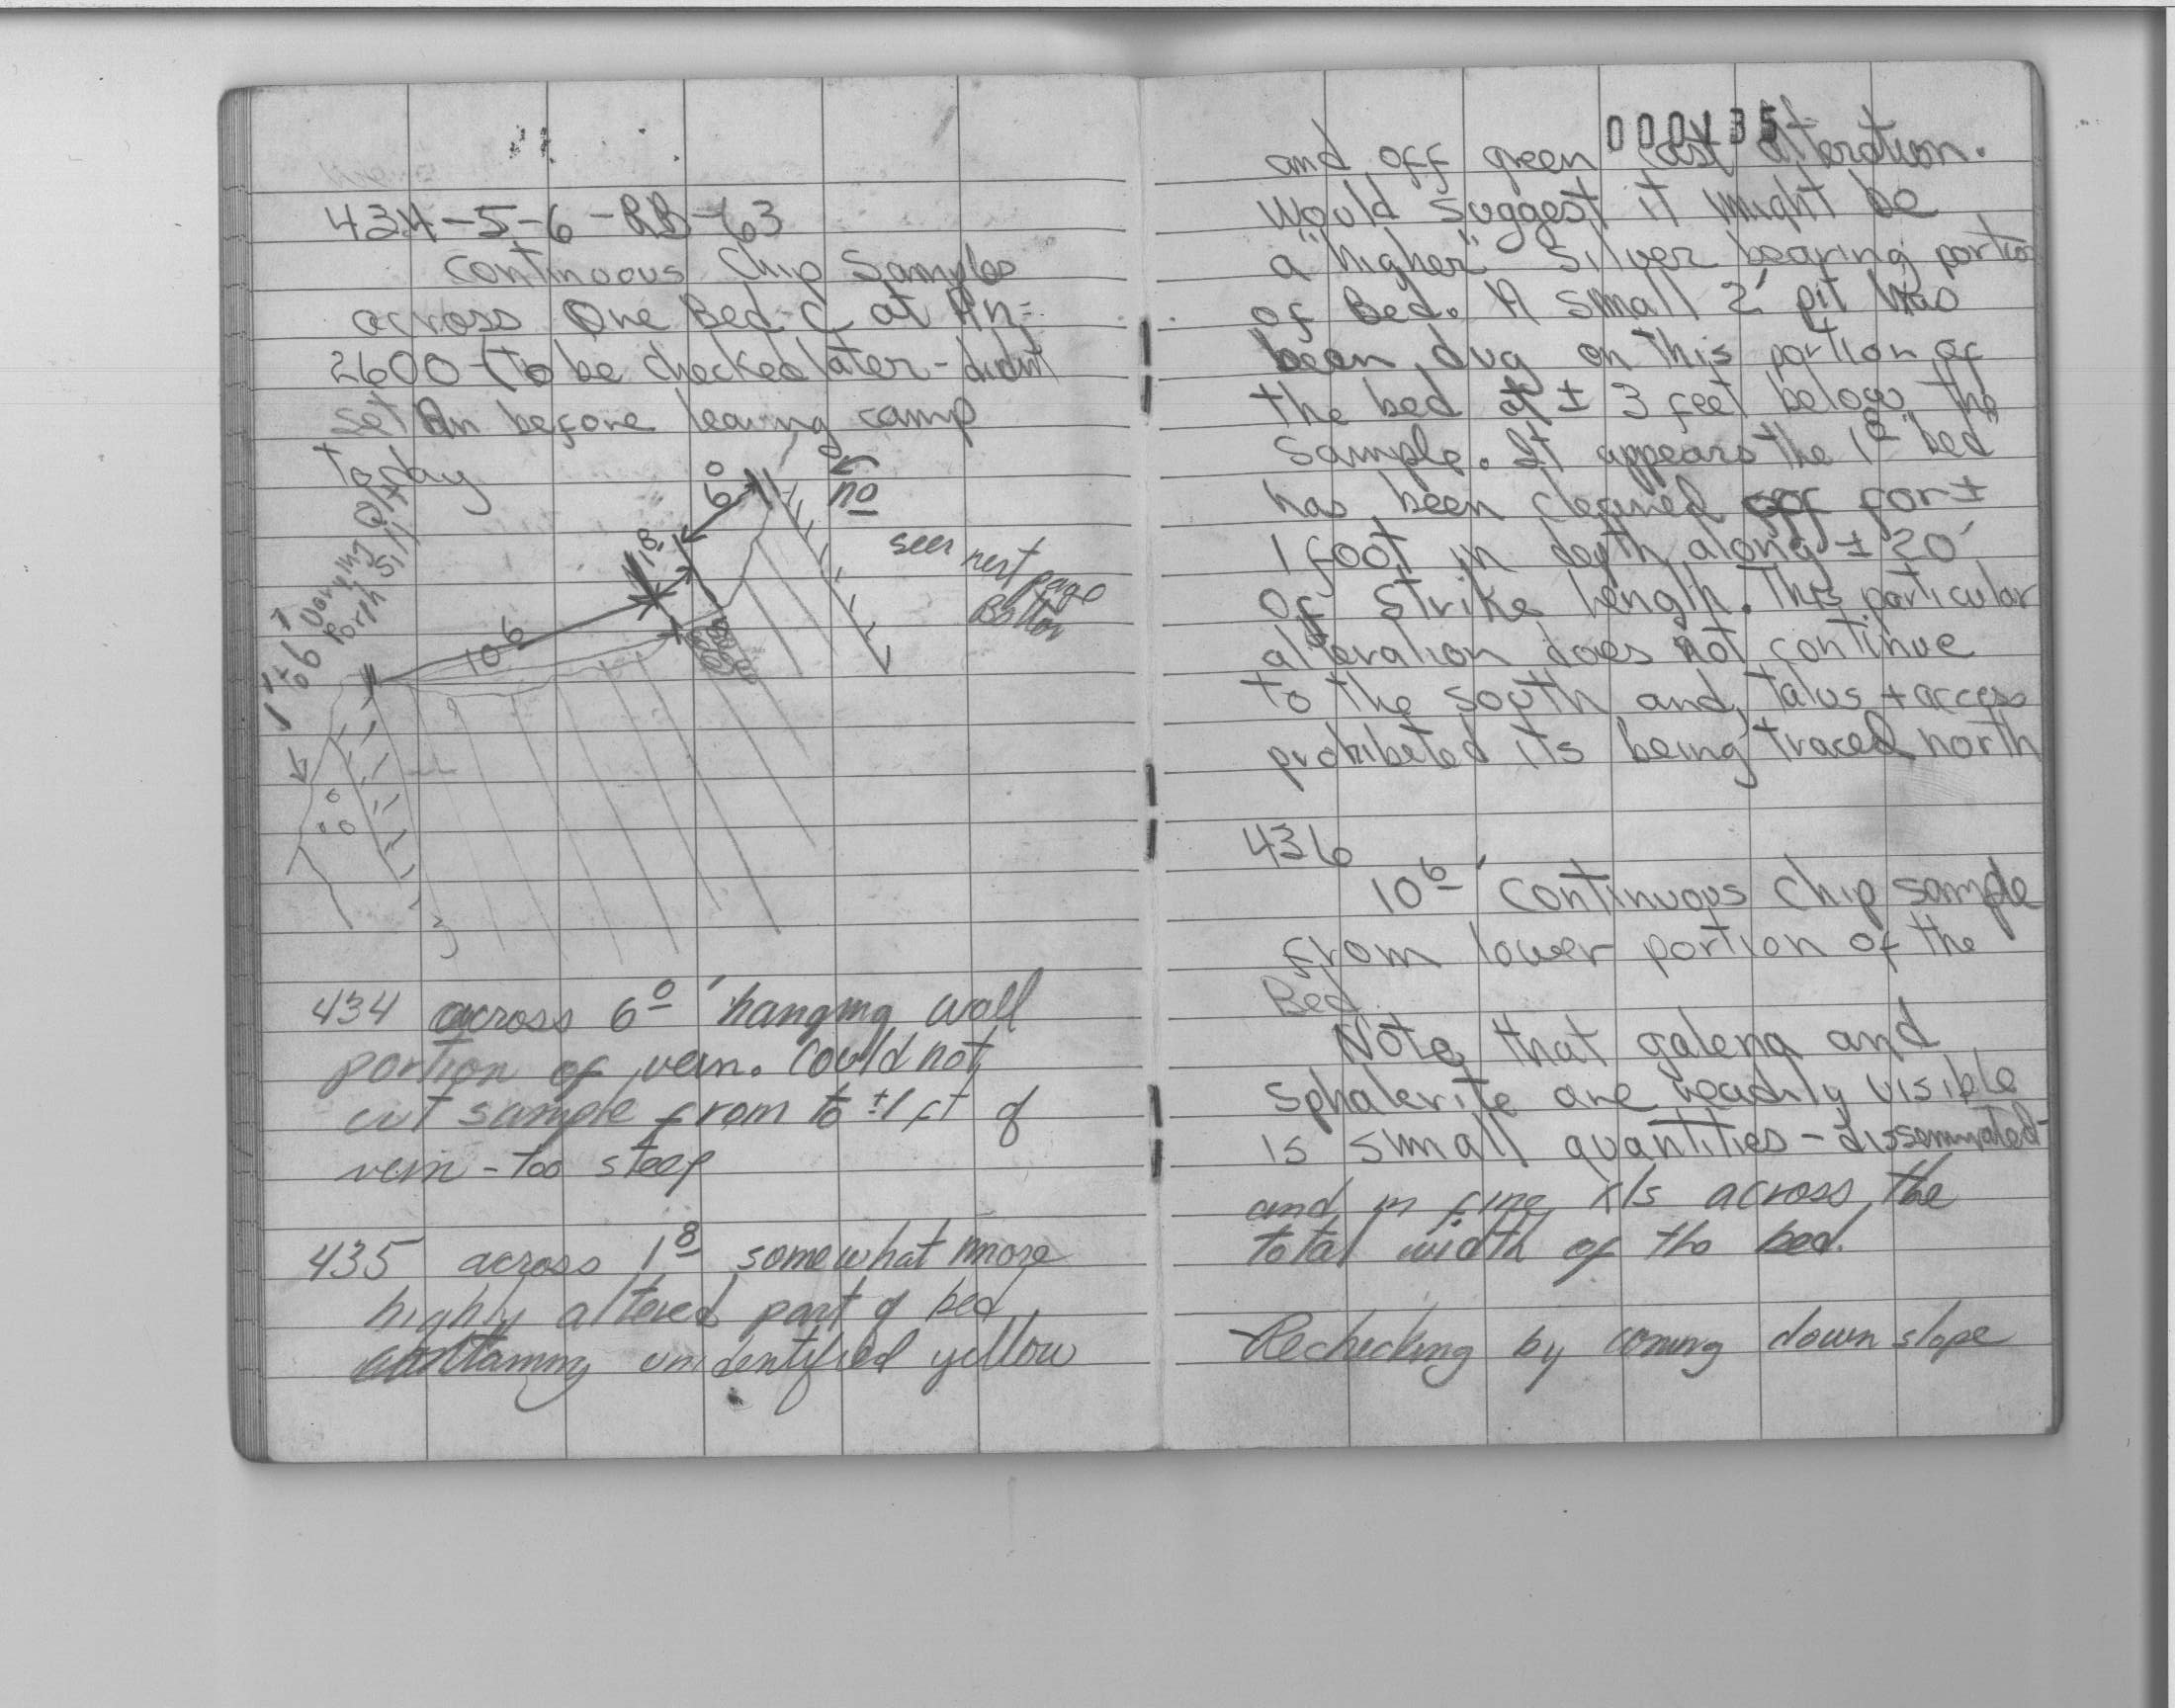 434-5-6-RB-63
Continuous Chip Samples
across One Bed C at An=
2600 (to be checked later - didnt
set An before leaving camp
today
6 0
no
1 8
seen next page
Bottom
10 6
varying Qtz
Porth Sill
434 across 6 0 ' hanging wall
portion of vein. Could not
cut sample from to ±1 ft of
vein - too steep
435 across 1 8 somewhat more
highly altered part of bed
containing unidentified yellow
000135
and off green cast alteration.
Would suggest it might be
a "higher" Silver bearing portion
of Bed. A small 2' pit has
been dug on this portion of
the bed at ± 3 feet below the
sample. It appears the 1 8 "bed"
has been cleaned off for ±
1 foot in depth along ± 20'
of strike length. This particular
alteration does not continue
to the south and talus + access
prohibeted its being traced north
436
10 6 ' Continuous Chip sample
from lower portion of the
Bed
Note that galena and
sphalerite are readily visible
is small quantities - dissemnated
and in fine xls across the
total width of the bed.
Rechecking by coming down slope